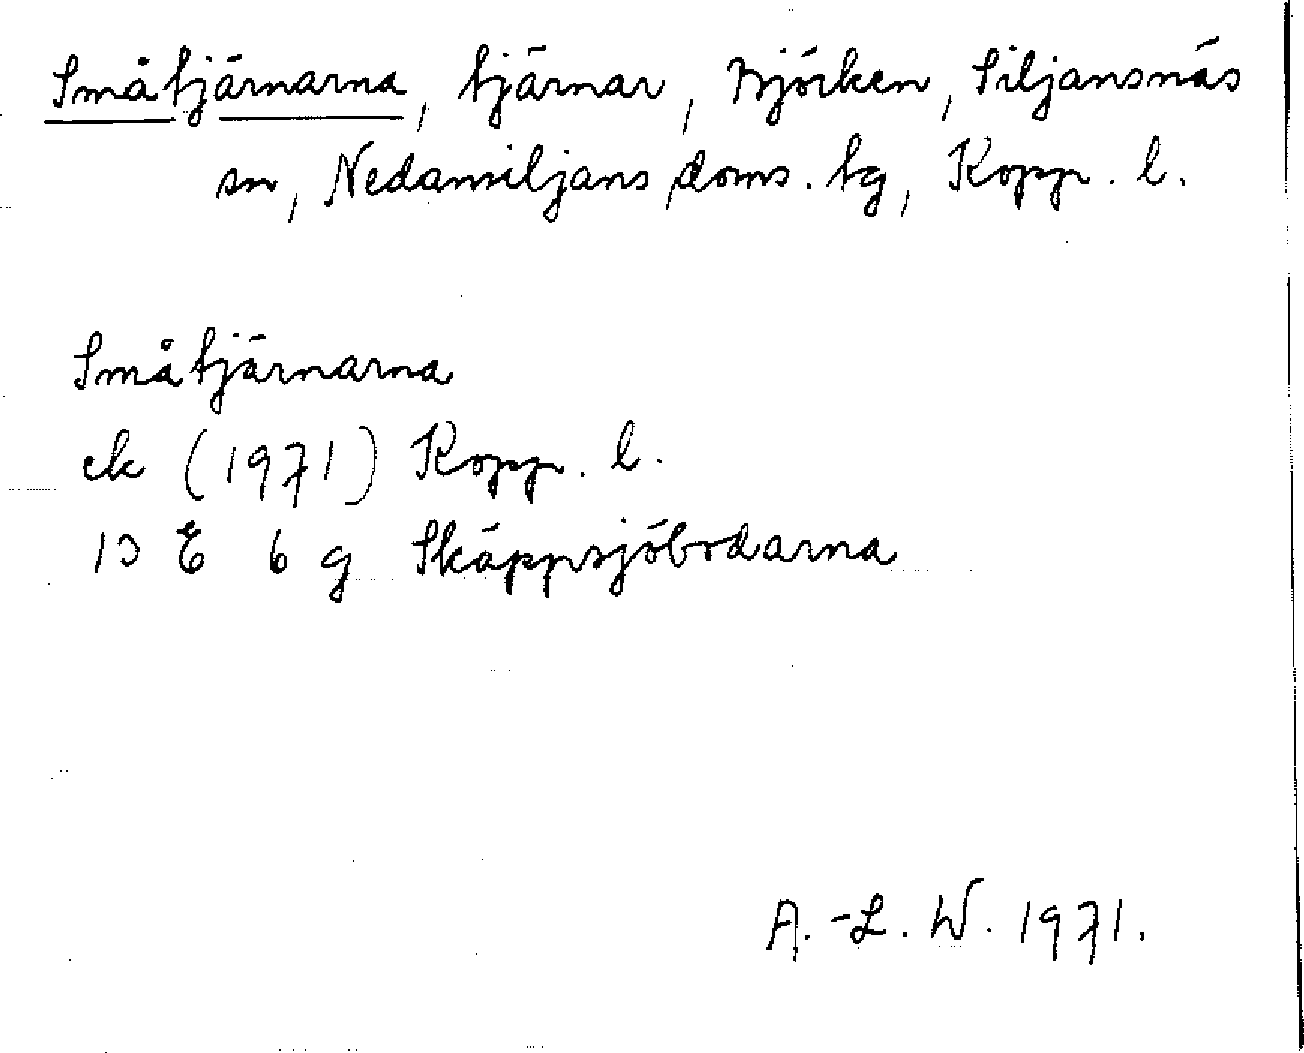 Småtjärnarna, tjärnar, Björken, Siljansnäs
sn, Nedansiljans doms. tg, Kopp. l.
Småtjärnarna
ek (1971) Kopp. l.
13 E 6 g Skäppsjöbodarna
A.-L. W. 1971.